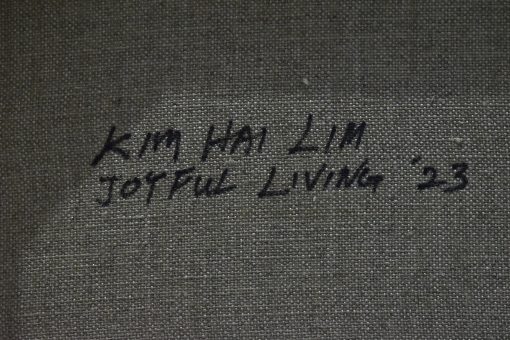 KIM HAI LIM
JOYFUL LIVING '23